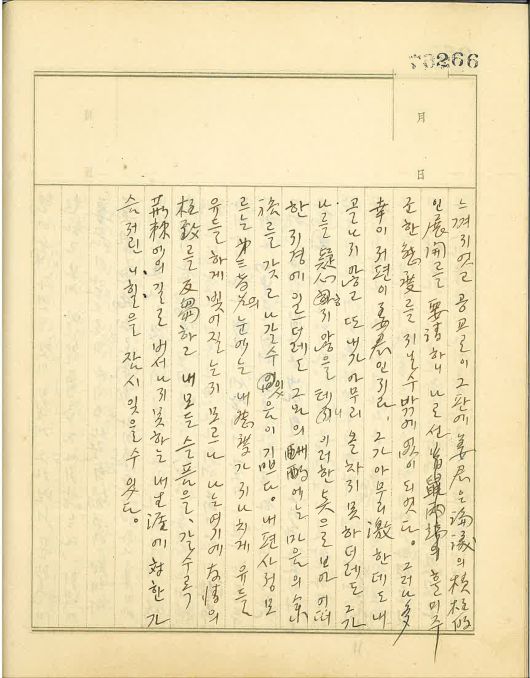 70266
月
日
느껴지었고 공교로이 그판에 姜君은 論議의 積極的
인 展開를 要請하니 나로선 首鼠兩端의 흘미주
군한 態度를 지닐수밖에 없이 되었다. 그러나 多
幸이 저편이 姜君인지라 그가 아무리 激한데도 내
골나지 않고 또 내가 아무리 온차지 못하더래도 그가
나를 疑心하지 않을 테니 이러한 뜻으로 보아 어떠
한 지경에 일으더래도 그와의 酬酌에는 마음의 余
裕를 갖고 나갈수 있음이 기쁘다. 내 편사정 모
르는 第三者의 눈에는 내 態度가 지나치게 유들
유들하게 빛어질는지 모르나 나는 여기에 友情의
極致를 反芻하고 내 모든 슬픔을, 갈수록
荊棘에의 길로 벗어나지 못하는 내 生涯에 対한 가
슴 저린 잠시 잊을 수 있다.